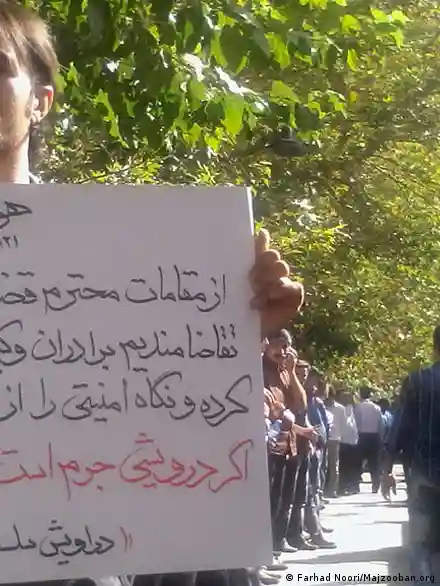 هو
۱۲۱
از مقامات محترم قضا
تقاضا مندیم برادران وکی
کرده و نگاه امنیتی را از
اگر درویشی جرم است
دراویش
© Farhad Noori/Majzooban.org